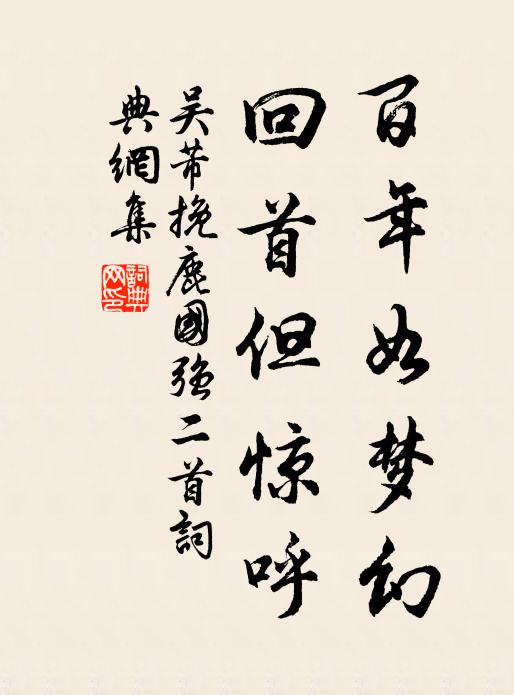 百年如梦幻
回首但惊呼
吴芾挽鹿國强二首詞
典網集
詞典网印